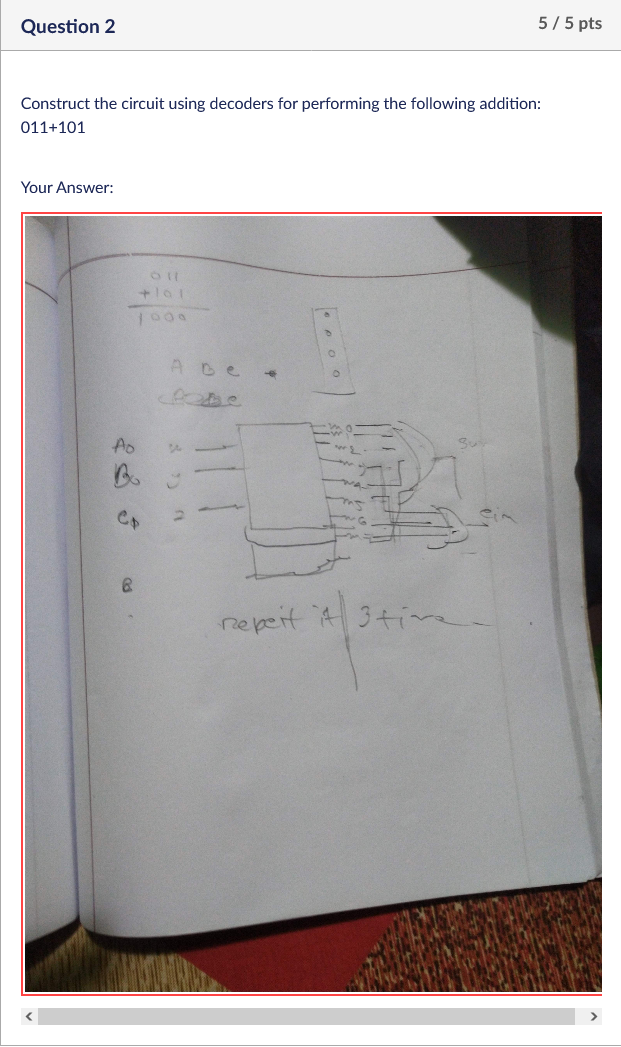 Question 2
5 / 5 pts
Construct the circuit using decoders for performing the following addition:
011+101
Your Answer:
011
+101
1000
A B C
A0 x
B0 y
C0 z
m0
m1
m2
m3
m4
m5
m6
cin
B
repeit it 3 time